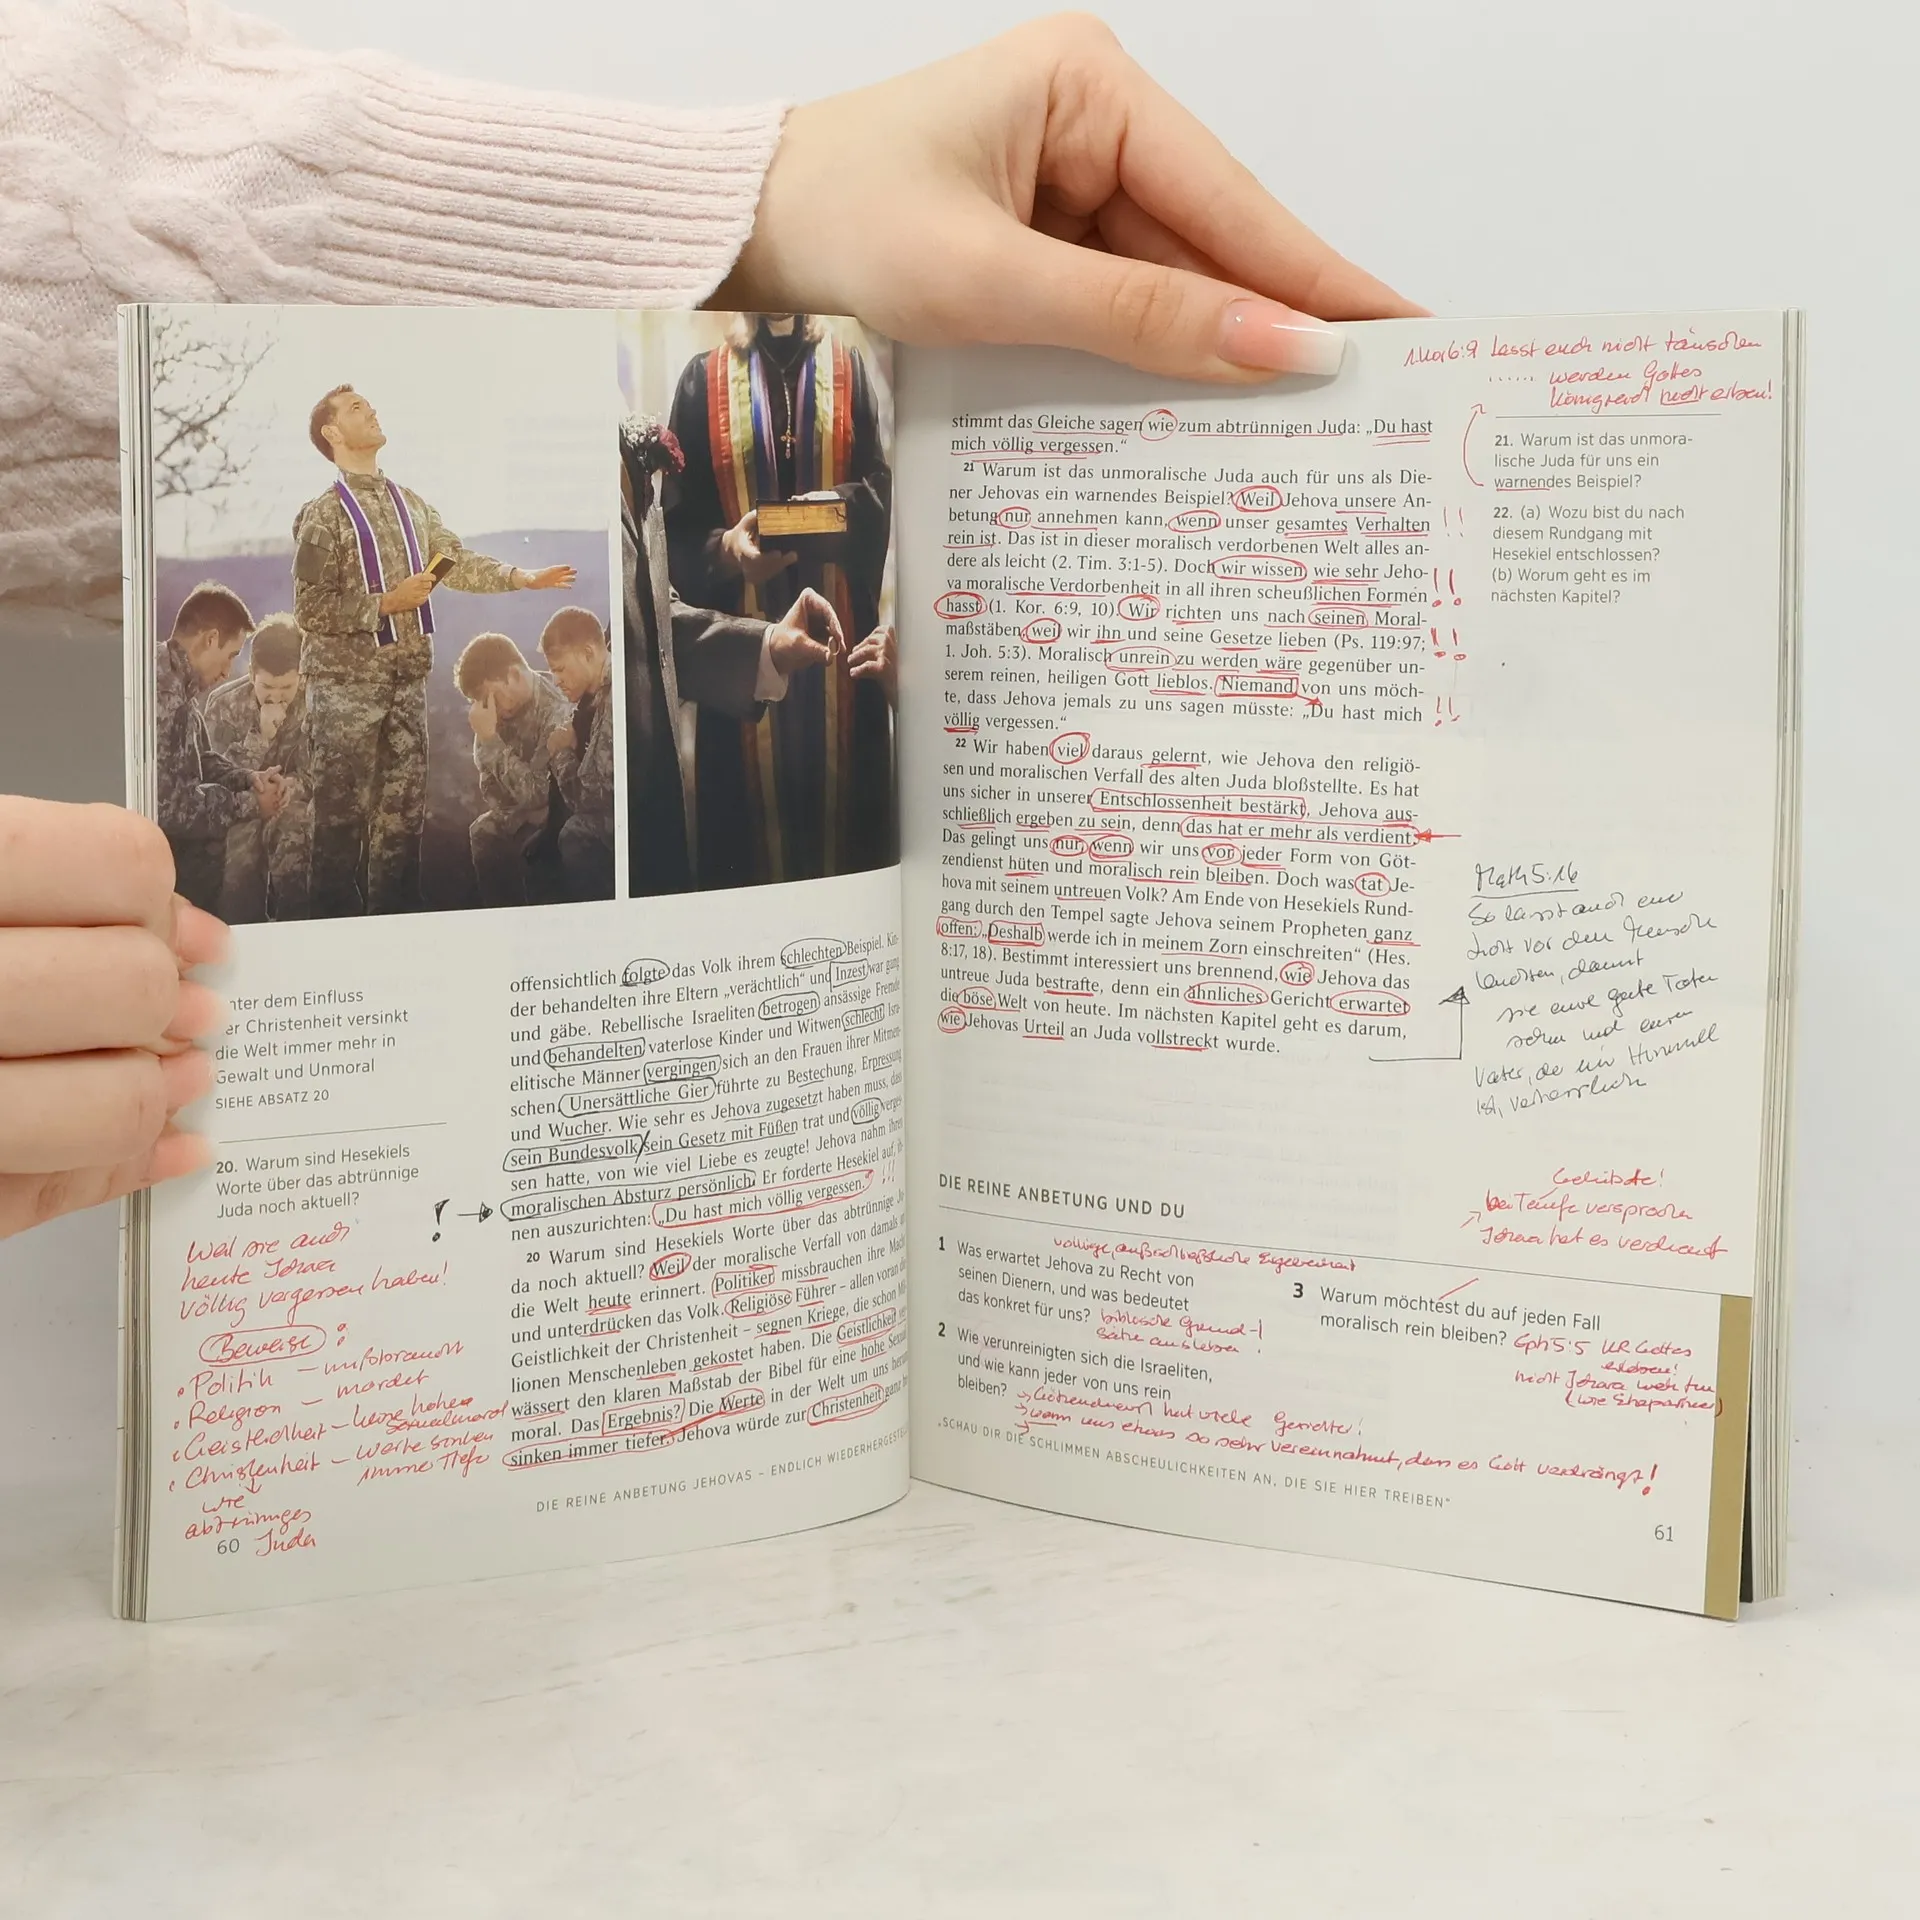 nter dem Einfluss
er Christenheit versinkt
die Welt immer mehr in
Gewalt und Unmoral
SIEHE ABSATZ 20
20. Warum sind Hesekiels
Worte über das abtrünnige
Juda noch aktuell?
Weil sie auch
heute Jehova
völlig vergessen haben!
Beweise:
Politik – mißbraucht
Religion – mordet
Geistlichkeit – keine hohen
Sexualmoral
Christenheit – Werte sinken
immer tiefer
wie
abtrünniges
Juda
60
offensichtlich folgte das Volk ihrem schlechten Beispiel. Kin-
der behandelten ihre Eltern „verächtlich“ und Inzest war gang
und gäbe. Rebellische Israeliten betrogen ansässige Fremde
und behandelten vaterlose Kinder und Witwen schlecht. Isra-
elitische Männer vergingen sich an den Frauen ihrer Mitmen-
schen. Unersättliche Gier führte zu Bestechung, Erpressung
und Wucher. Wie sehr es Jehova zugesetzt haben muss, das
sein Bundesvolk sein Gesetz mit Füßen trat und völlig verges
sen hatte, von wie viel Liebe es zeugte! Jehova nahm ihren
moralischen Absturz persönlich. Er forderte Hesekiel auf, ih-
nen auszurichten: „Du hast mich völlig vergessen.“ !!!
20 Warum sind Hesekiels Worte über das abtrünnige Ju
da noch aktuell? Weil der moralische Verfall von damals an
die Welt heute erinnert. Politiker missbrauchen ihre Mach
und unterdrücken das Volk. Religiöse Führer – allen voran di
Geistlichkeit der Christenheit – segnen Kriege, die schon Mil
lionen Menschenleben gekostet haben. Die Geistlichkeit ve
wässert den klaren Maßstab der Bibel für eine hohe Sexual
moral. Das Ergebnis? Die Werte in der Welt um uns heru
sinken immer tiefer. Jehova würde zur Christenheit ganz be
DIE REINE ANBETUNG JEHOVAS – ENDLICH WIEDERHERGESTEL
1.Kor 6:9 Lasst euch nicht täuschen
...... werden Gottes
Königreich nicht erben!
stimmt das Gleiche sagen wie zum abtrünnigen Juda: „Du hast
mich völlig vergessen.“
21 Warum ist das unmoralische Juda auch für uns als Die-
ner Jehovas ein warnendes Beispiel? Weil Jehova unsere An-
betung nur annehmen kann, wenn unser gesamtes Verhalten !!
rein ist. Das ist in dieser moralisch verdorbenen Welt alles an-
dere als leicht (2. Tim. 3:1-5). Doch wir wissen, wie sehr Jeho-
va moralische Verdorbenheit in all ihren scheußlichen Formen !!
hasst (1. Kor. 6:9, 10). Wir richten uns nach seinen Moral-
maßstäben, weil wir ihn und seine Gesetze lieben (Ps. 119:97; !!
1. Joh. 5:3). Moralisch unrein zu werden wäre gegenüber un-
serem reinen, heiligen Gott lieblos. Niemand von uns möch-
te, dass Jehova jemals zu uns sagen müsste: „Du hast mich !!
völlig vergessen.“
22 Wir haben viel daraus gelernt, wie Jehova den religiö-
sen und moralischen Verfall des alten Juda bloßstellte. Es hat
uns sicher in unserer Entschlossenheit bestärkt, Jehova aus-
schließlich ergeben zu sein, denn das hat er mehr als verdient.
Das gelingt uns nur, wenn wir uns vor jeder Form von Göt-
zendienst hüten und moralisch rein bleiben. Doch was tat Je-
hova mit seinem untreuen Volk? Am Ende von Hesekiels Rund-
gang durch den Tempel sagte Jehova seinem Propheten ganz
offen: „Deshalb werde ich in meinem Zorn einschreiten“ (Hes.
8:17, 18). Bestimmt interessiert uns brennend, wie Jehova das
untreue Juda bestrafte, denn ein ähnliches Gericht erwartet
die böse Welt von heute. Im nächsten Kapitel geht es darum,
wie Jehovas Urteil an Juda vollstreckt wurde.
21. Warum ist das unmora-
lische Juda für uns ein
warnendes Beispiel?
22. (a) Wozu bist du nach
diesem Rundgang mit
Hesekiel entschlossen?
(b) Worum geht es im
nächsten Kapitel?
Math 5:16
So lasst auch euer
Licht vor den Mensche
leuchten, damit
sie eure guten Taten
sehen und euren
Vater, der im Himmel
ist, verherrlichen
DIE REINE ANBETUNG UND DU
Gelübde!
bei Taufe versprochen
Jehova hat es verdient
1 Was erwartet Jehova zu Recht von
seinen Dienern, und was bedeutet
das konkret für uns?
völlige, außschließliche Ergebenheit
biblische Grund-
sätze ausleben!
2 Wie verunreinigten sich die Israeliten,
und wie kann jeder von uns rein
bleiben?
Götzendienst hat viele Gesichter!
wenn uns etwas so sehr vereinnahmt, dass es Gott verdrängt!
3 Warum möchtest du auf jeden Fall
moralisch rein bleiben?
Eph 5:5 KR Gottes
erleben!
nicht Jehova weh tun
(wie Ehepartner)
„SCHAU DIR DIE SCHLIMMEN ABSCHEULICHKEITEN AN, DIE SIE HIER TREIBEN“
61